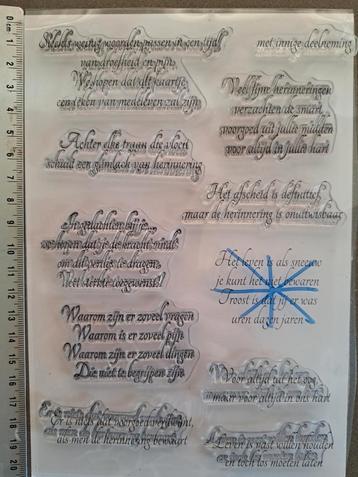 Slechts weinig woorden passen in een tijd
van droefheid en pijn.
We hopen dat dit kaartje
een teken van medeleven zal zijn
met innige deelneming
Veel fijne herinneringen
verzachten de smart,
voorgoed uit jullie midden
voor altijd in jullie hart
Achter elke traan die vloeit
schuilt een glimlach van herinnering
Het afscheid is definitief,
maar de herinnering is onuitwisbaar
In gedachten bij je...
we hopen dat je de kracht vindt
om dit verlies te dragen.
Veel liefde toegewenst!
Het leven is als sneeuw
je kunt het niet bewaren
Troost is dat jij er was
uren dagen jaren
Waarom zijn er zoveel vragen
Waarom is er zoveel pijn
Waarom zijn er zoveel dingen
Die niet te begrijpen zijn
Voor altijd uit het oog
maar voor altijd in ons hart
Er is niets dat voorgoed verdwijnt,
als men de herinnering bewaart
Leven is vast willen houden
en toch los moeten laten
0 cm 1 2 3 4 5 6 7 8 9 10 11 12 13 14 15 16 17 18 19 20